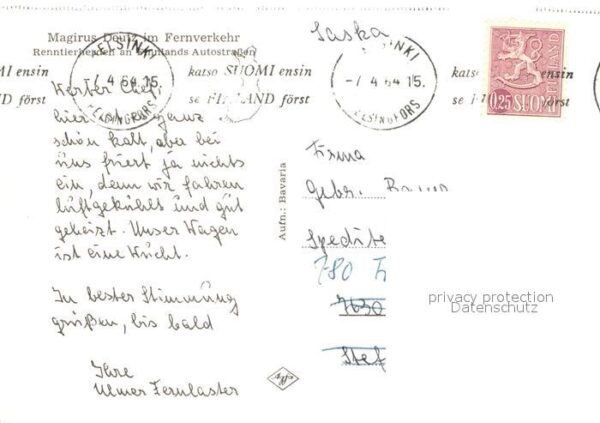 Magirus Deutz im Fernverkehr
Renntierherden an Finnlands Autostraßen
Saska
HELSINKI
4 64.15
HELSINGFORS
MI ensin
ND först
katso SUOMI ensin
se FINLAND först
HELSINKI
-7.4 64 15.
HELSINGFORS
kats ensin
se först
FINLAND
0,25 SUOMI
Werter Chef!
hier ist es ganz
schön kalt, aber bei
uns friert ja nichts
ein, denn wir fahren
luftgekühlt und gut
geheizt. Unser Wagen
ist eine Wucht.
In bester Stimmung
grüßen, bis bald
Ihre
Ulmer Fernlaster
Aufn.: Bavaria
Firma
Gebr.
Spedite
780
7630
Stet
privacy protection
Datenschutz